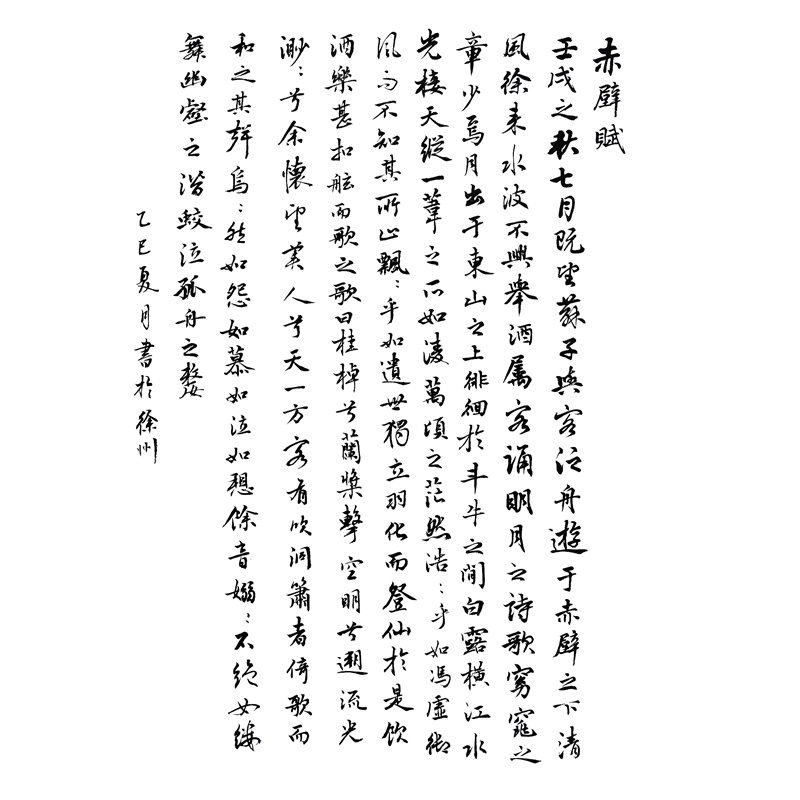 赤壁賦
壬戌之秋七月既望蘇子與客泛舟遊于赤壁之下清
風徐来水波不興舉酒属客誦明月之詩歌窈窕之
章少焉月出于東山之上徘徊於斗牛之間白露橫江水
光接天縱一葦之所如淩萬頃之茫然浩:乎如馮虛御
風而不知其所止飄:乎如遺世獨立羽化而登仙於是飲
酒樂甚扣舷而歌之歌曰桂棹兮蘭槳擊空明兮遡流光
渺:兮余懷望美人兮天一方客有吹洞簫者倚歌而
和之其聲烏:然如怨如慕如泣如愬餘音嫋:不絕如縷
舞幽壑之潛蛟泣孤舟之嫠
乙巳夏月書於徐州